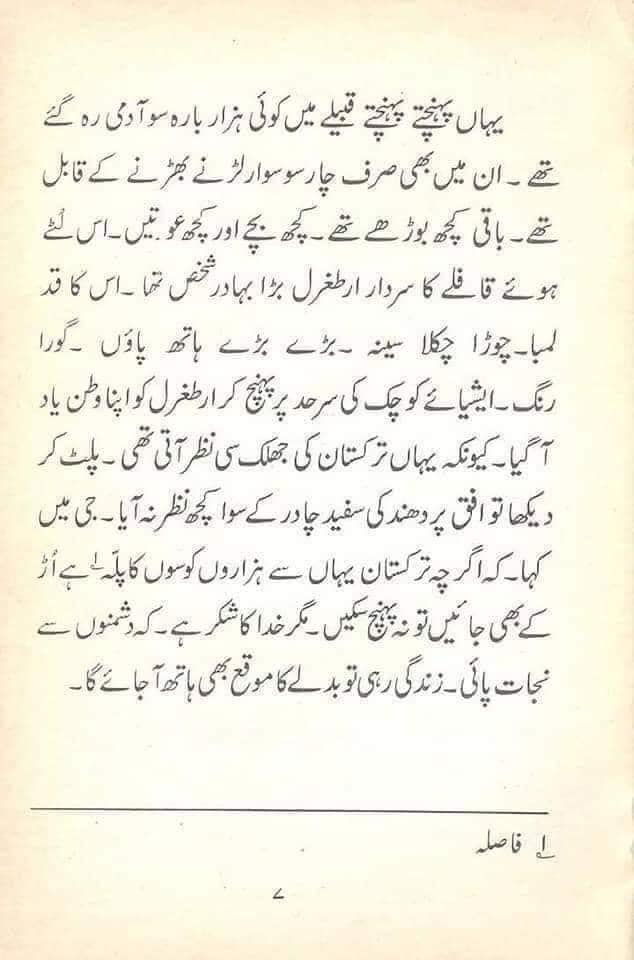 یہاں پہنچتے پہنچتے قبیلے میں کوئی ہزار بارہ سو آدمی رہ گئے
تھے ۔ ان میں بھی صرف چار سو سوار لڑنے بھڑنے کے قابل
تھے۔ باقی کچھ بوڑھے تھے۔ کچھ بچے اور کچھ عورتیں۔ اس لُٹے
ہوئے قافلے کا سردار ارطغرل بڑا بہادر شخص تھا ۔ اس کا قد
لمبا۔ چوڑا چکلا سینہ ۔ بڑے بڑے ہاتھ پاؤں ۔ گورا
رنگ ۔ ایشیائے کوچک کی سرحد پر پہنچ کر ارطغرل کو اپنا وطن یاد
آ گیا۔ کیونکہ یہاں ترکستان کی جھلک سی نظر آتی تھی ۔ پلٹ کر
دیکھا تو افق پر دھند کی سفید چادر کے سوا کچھ نظر نہ آیا ۔ جی میں
کہا۔ کہ اگرچہ ترکستان یہاں سے ہزاروں کوسوں کا پلّہ ۱؎ ہے اُڑ
کے بھی جائیں تو نہ پہنچ سکیں۔ مگر خدا کا شکر ہے۔ کہ دشمنوں سے
نجات پائی۔ زندگی رہی تو بدلے کا موقع بھی ہاتھ آ جائے گا۔
۱؎ فاصلہ
۷